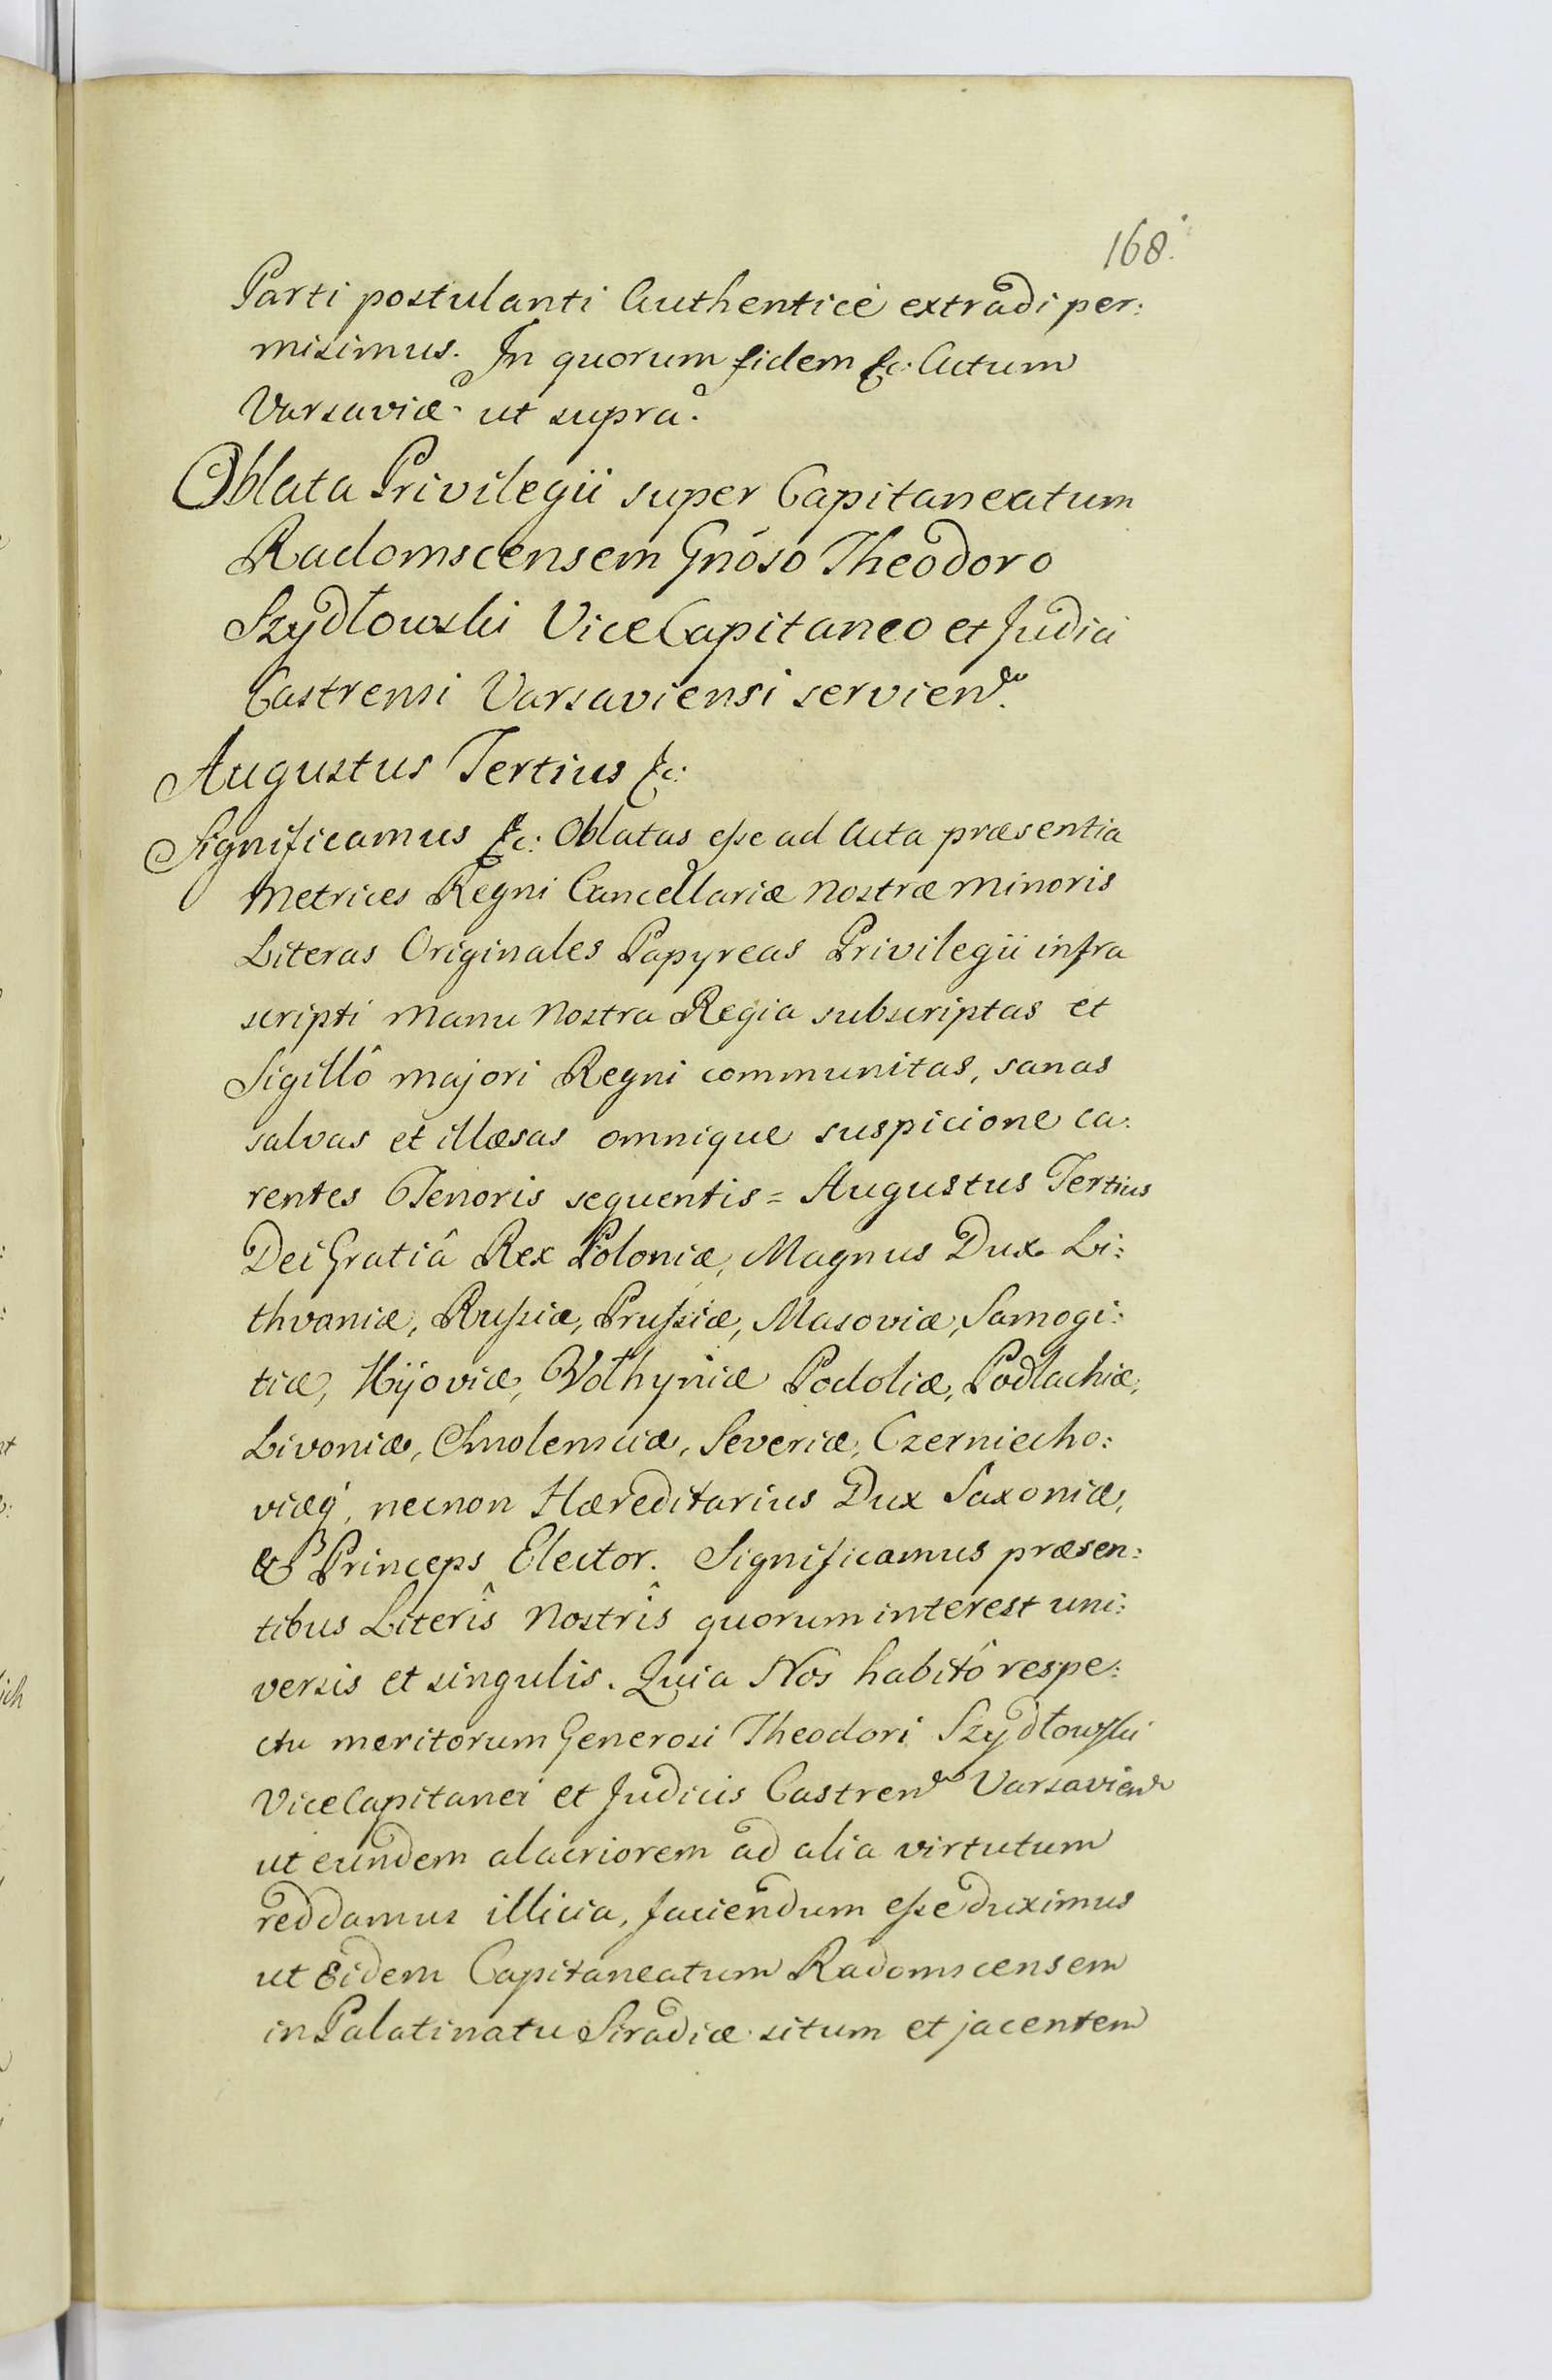 168.
Parti postulanti Authenticè extradi per:
misimus. In quorum fidem &c: Actum
Varsaviæ ut supra.
Oblata Privilegii super Capitaneatum
Radomscensem Gnôso Theodoro
Szydłowski ViceCapitaneo et Judici
Castrensi Varsaviensi servien.
Augustus Tertius &c:
Significamus &c: Oblatas eße ad Acta præsentia
Metrices Regni Cancellariæ Nostræ Minoris
Literas Originales Papyreas Privilegii infra
scripti Manu Nostra Regia subscriptas et
Sigillô majori Regni communitas, sanas
salvas et illæsas omnique suspicione ca:
rentes Tenoris sequentis = Augustus Tertius
Dei Gratiâ Rex Poloniæ, Magnus Dux Li:
thvaniæ, Rußiæ, Prußiæ, Masoviæ, Samogi:
tiæ, Kijoviæ, Wołhyniæ Podoliæ, Podlachiæ,
Livoniæ, Smolensciæ, Severiæ, Czerniecho:
viæq, necnon Hæreditarius Dux Saxoniæ,
& Princeps Elector. Significamus præsen:
tibus Literîs Nostrîs quorum interest uni:
versis et singulis. Quia Nos habitô respe:
ctu meritorum Generosi Theodori Szydłowski
ViceCapitanei et Judicis Castren Varsavien
ut eundem alacriorem ad alia virtutum
reddamus illicia, faciendum eße duximus
ut Eidem Capitaneatum Radomscensem
in Palatinatu Siradiæ situm et jacentem